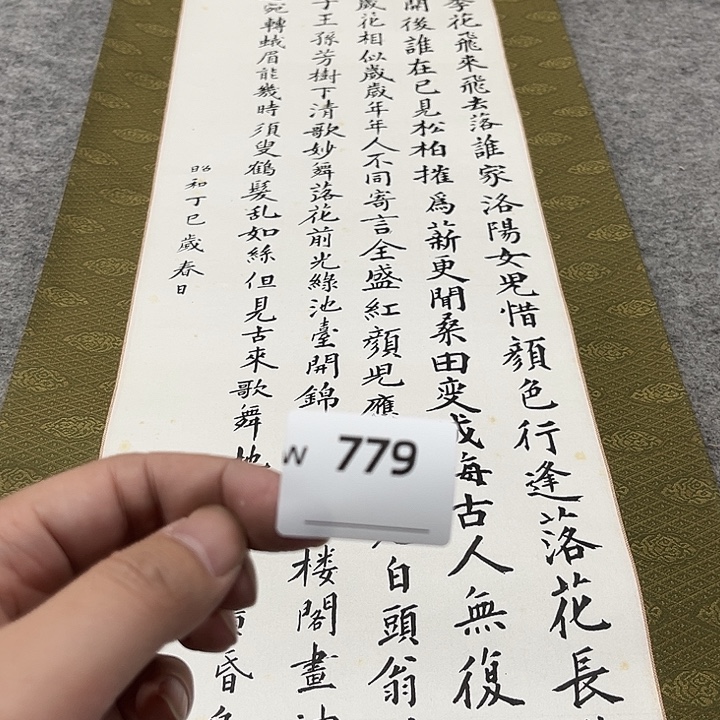 李花飛來飛去落誰家洛陽女児惜顔色行逢落花長
開後誰在已見松柏摧為薪更聞桑田変成海古人無復
歳花相似歳歳年年人不同寄言全盛紅顔児應白頭翁
子王孫芳樹下清歌妙舞落花前光綠池臺開錦楼閣畫
宛轉蛾眉能幾時須臾鶴髪乱如絲但見古來歌舞地昏
昭和丁巳歳春日
W 779